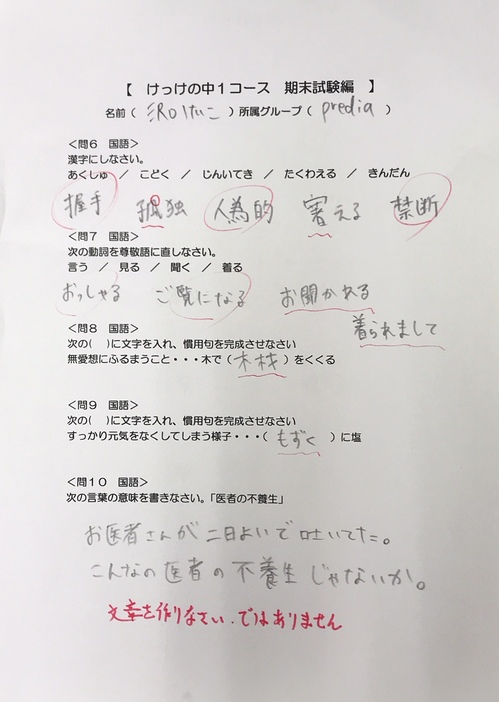 【 けっけの中1コース 期末試験編 】
名前( 沢口けいこ )所属グループ( predia )
<問6 国語>
漢字にしなさい。
あくしゅ / こどく / じんいてき / たくわえる / きんだん
握手 孤独 人為的 える 禁断
<問7 国語>
次の動詞を尊敬語に直しなさい。
言う / 見る / 聞く / 着る
おっしゃる ご覧になる お聞かれる
着られまして
<問8 国語>
次の( )に文字を入れ、慣用句を完成させなさい
無愛想にふるまうこと・・・木で( 木材 )をくくる
<問9 国語>
次の( )に文字を入れ、慣用句を完成させなさい
すっかり元気をなくしてしまう様子・・・( もずく )に塩
<問10 国語>
次の言葉の意味を書きなさい。「医者の不養生」
お医者さんが二日よいで吐いてた。
こんなの医者の不養生じゃないか。
文章を作りなさい.ではありません